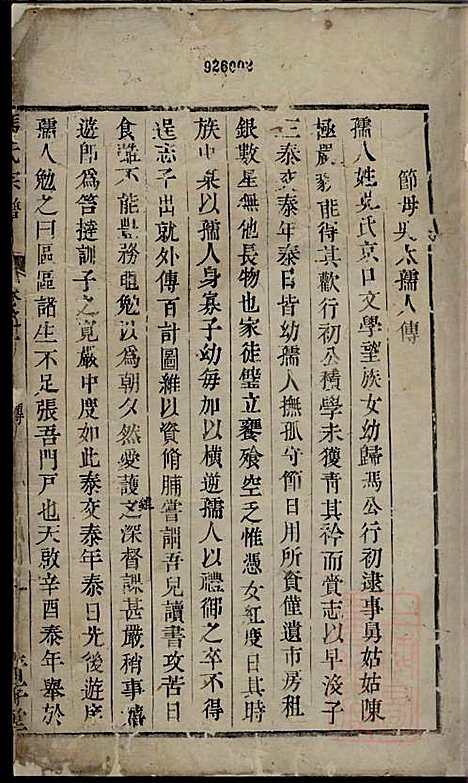 926002
節母吳太孺人傳
孺人姓吳氏京口文學望族女幼歸馮公行初逮事舅姑姑陳
極嚴毅能得其歡行初公積學未獲青其衿而賫志以早沒子
三泰交泰年泰日皆幼孺人撫孤守節日用所資僅遺市房租
銀數星無他長物也家徒壁立饔飧空乏惟憑女紅度日其時
族中某以孺人身寡子幼每加以橫逆孺人以禮御之卒不得
逞志子出就外傅百計圖維以資脩脯嘗訓吾兒讀書攻苦日
食雖不能豐務黽勉以為朝夕然愛護之雖深督課甚嚴稍事嬉
遊即為笞撻訓子之寬嚴中度如此泰交泰年泰日先後遊庠
孺人勉之曰區區諸生不足張吾門戶也天啟辛酉泰年舉於
馮氏宗譜
傳